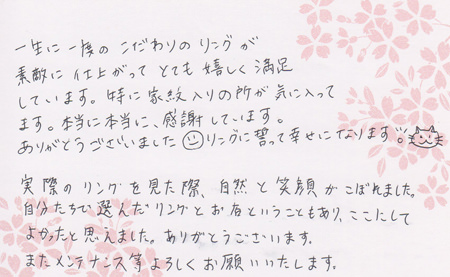 一生に一度の こだわりの リングが
素敵に 仕上がって とても 嬉しく 満足
しています。特に 家紋入りの所が 気に入って
ます。本当に本当に、感謝しています。
ありがとうございました リングに誓って幸せになります!!
実際の リングを見た際、自然と 笑顔が こぼれました。
自分たちで 選んだ リングとお店ということもあり、ここにして
よかったと思えました。ありがとうございます。
またメンテナンス等よろしく お願いいたします。